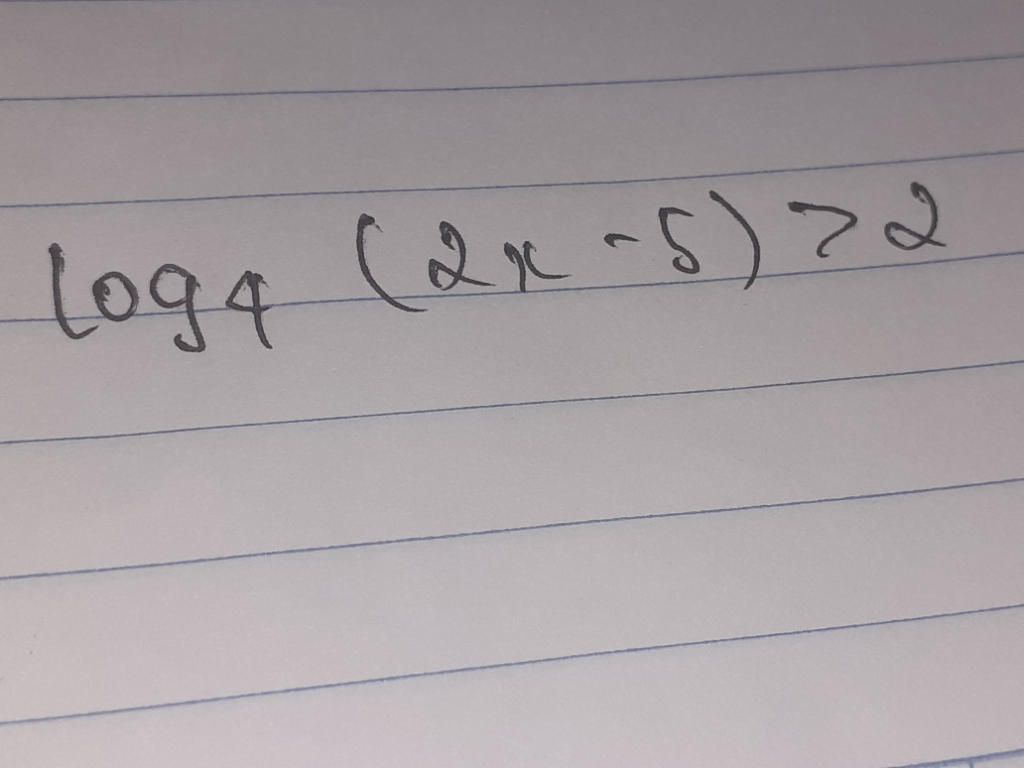 log₄ (2x - 5) > 2